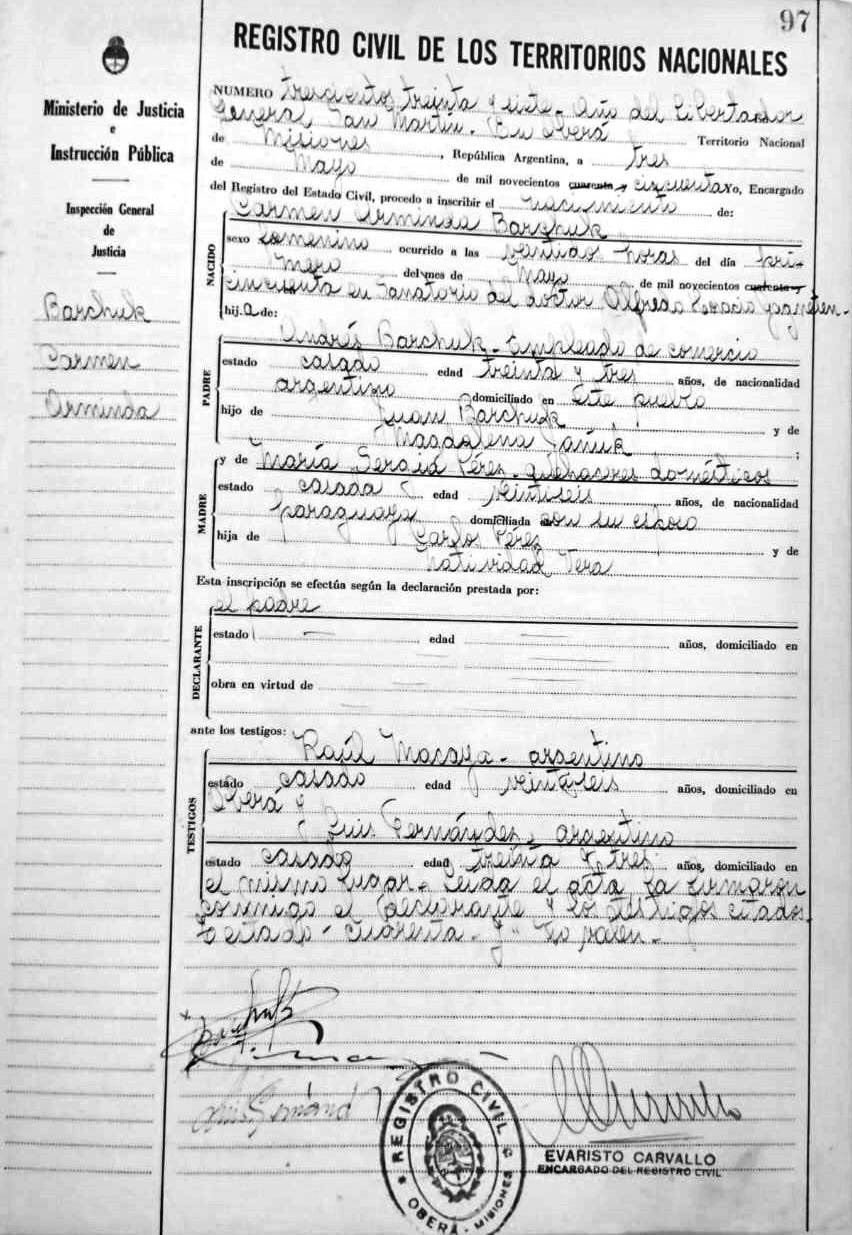 97
REGISTRO CIVIL DE LOS TERRITORIOS NACIONALES
Ministerio de Justicia
e
Instrucción Pública
Inspección General
de
Justicia
Barchuk
Carmen
Orminda
NUMERO trescientos treinta y siete - Año del Libertador
General San Martín. En Oberá
de Misiones, República Argentina, a tres Territorio Nacional
de Mayo de mil novecientos cuarenta y cincuenta Yo, Encargado
del Registro del Estado Civil, procedo a inscribir el nacimiento de:
NACIDO
Carmen Orminda Barchuk
sexo femenino ocurrido a las veintidos horas del día pri-
mero del mes de Mayo de mil novecientos cuarenta y
cincuenta en Sanatorio del doctor Alfredo Horacio
hij.a de:
PADRE
Andrés Barchuk - Empleado de comercio
estado casado edad treinta y tres años, de nacionalidad
argentino domiciliado en este pueblo
hijo de Juan Barchuk y de
Magdalena ;
MADRE
y de María Pérez - quehaceres domésticos
estado casada edad veintiseis años, de nacionalidad
paraguaya domiciliada con su esposo
hija de Carlos Pérez y de
Natividad Vera
Esta inscripción se efectúa según la declaración prestada por:
DECLARANTE
el padre
estado edad años, domiciliado en
obra en virtud de
ante los testigos:
TESTIGOS
Raúl Macaya - argentino
estado casado edad veintiseis años, domiciliado en
Oberá y
Luis Fernández, argentino
estado casado edad treinta y tres años, domiciliado en
el mismo lugar - Leida el acta la firmaron
conmigo el declarante y los testigos citados.
Testado - cuarenta - y - No valen -
REGISTRO CIVIL
OBERÁ - MISIONES
EVARISTO CARVALLO
ENCARGADO DEL REGISTRO CIVIL